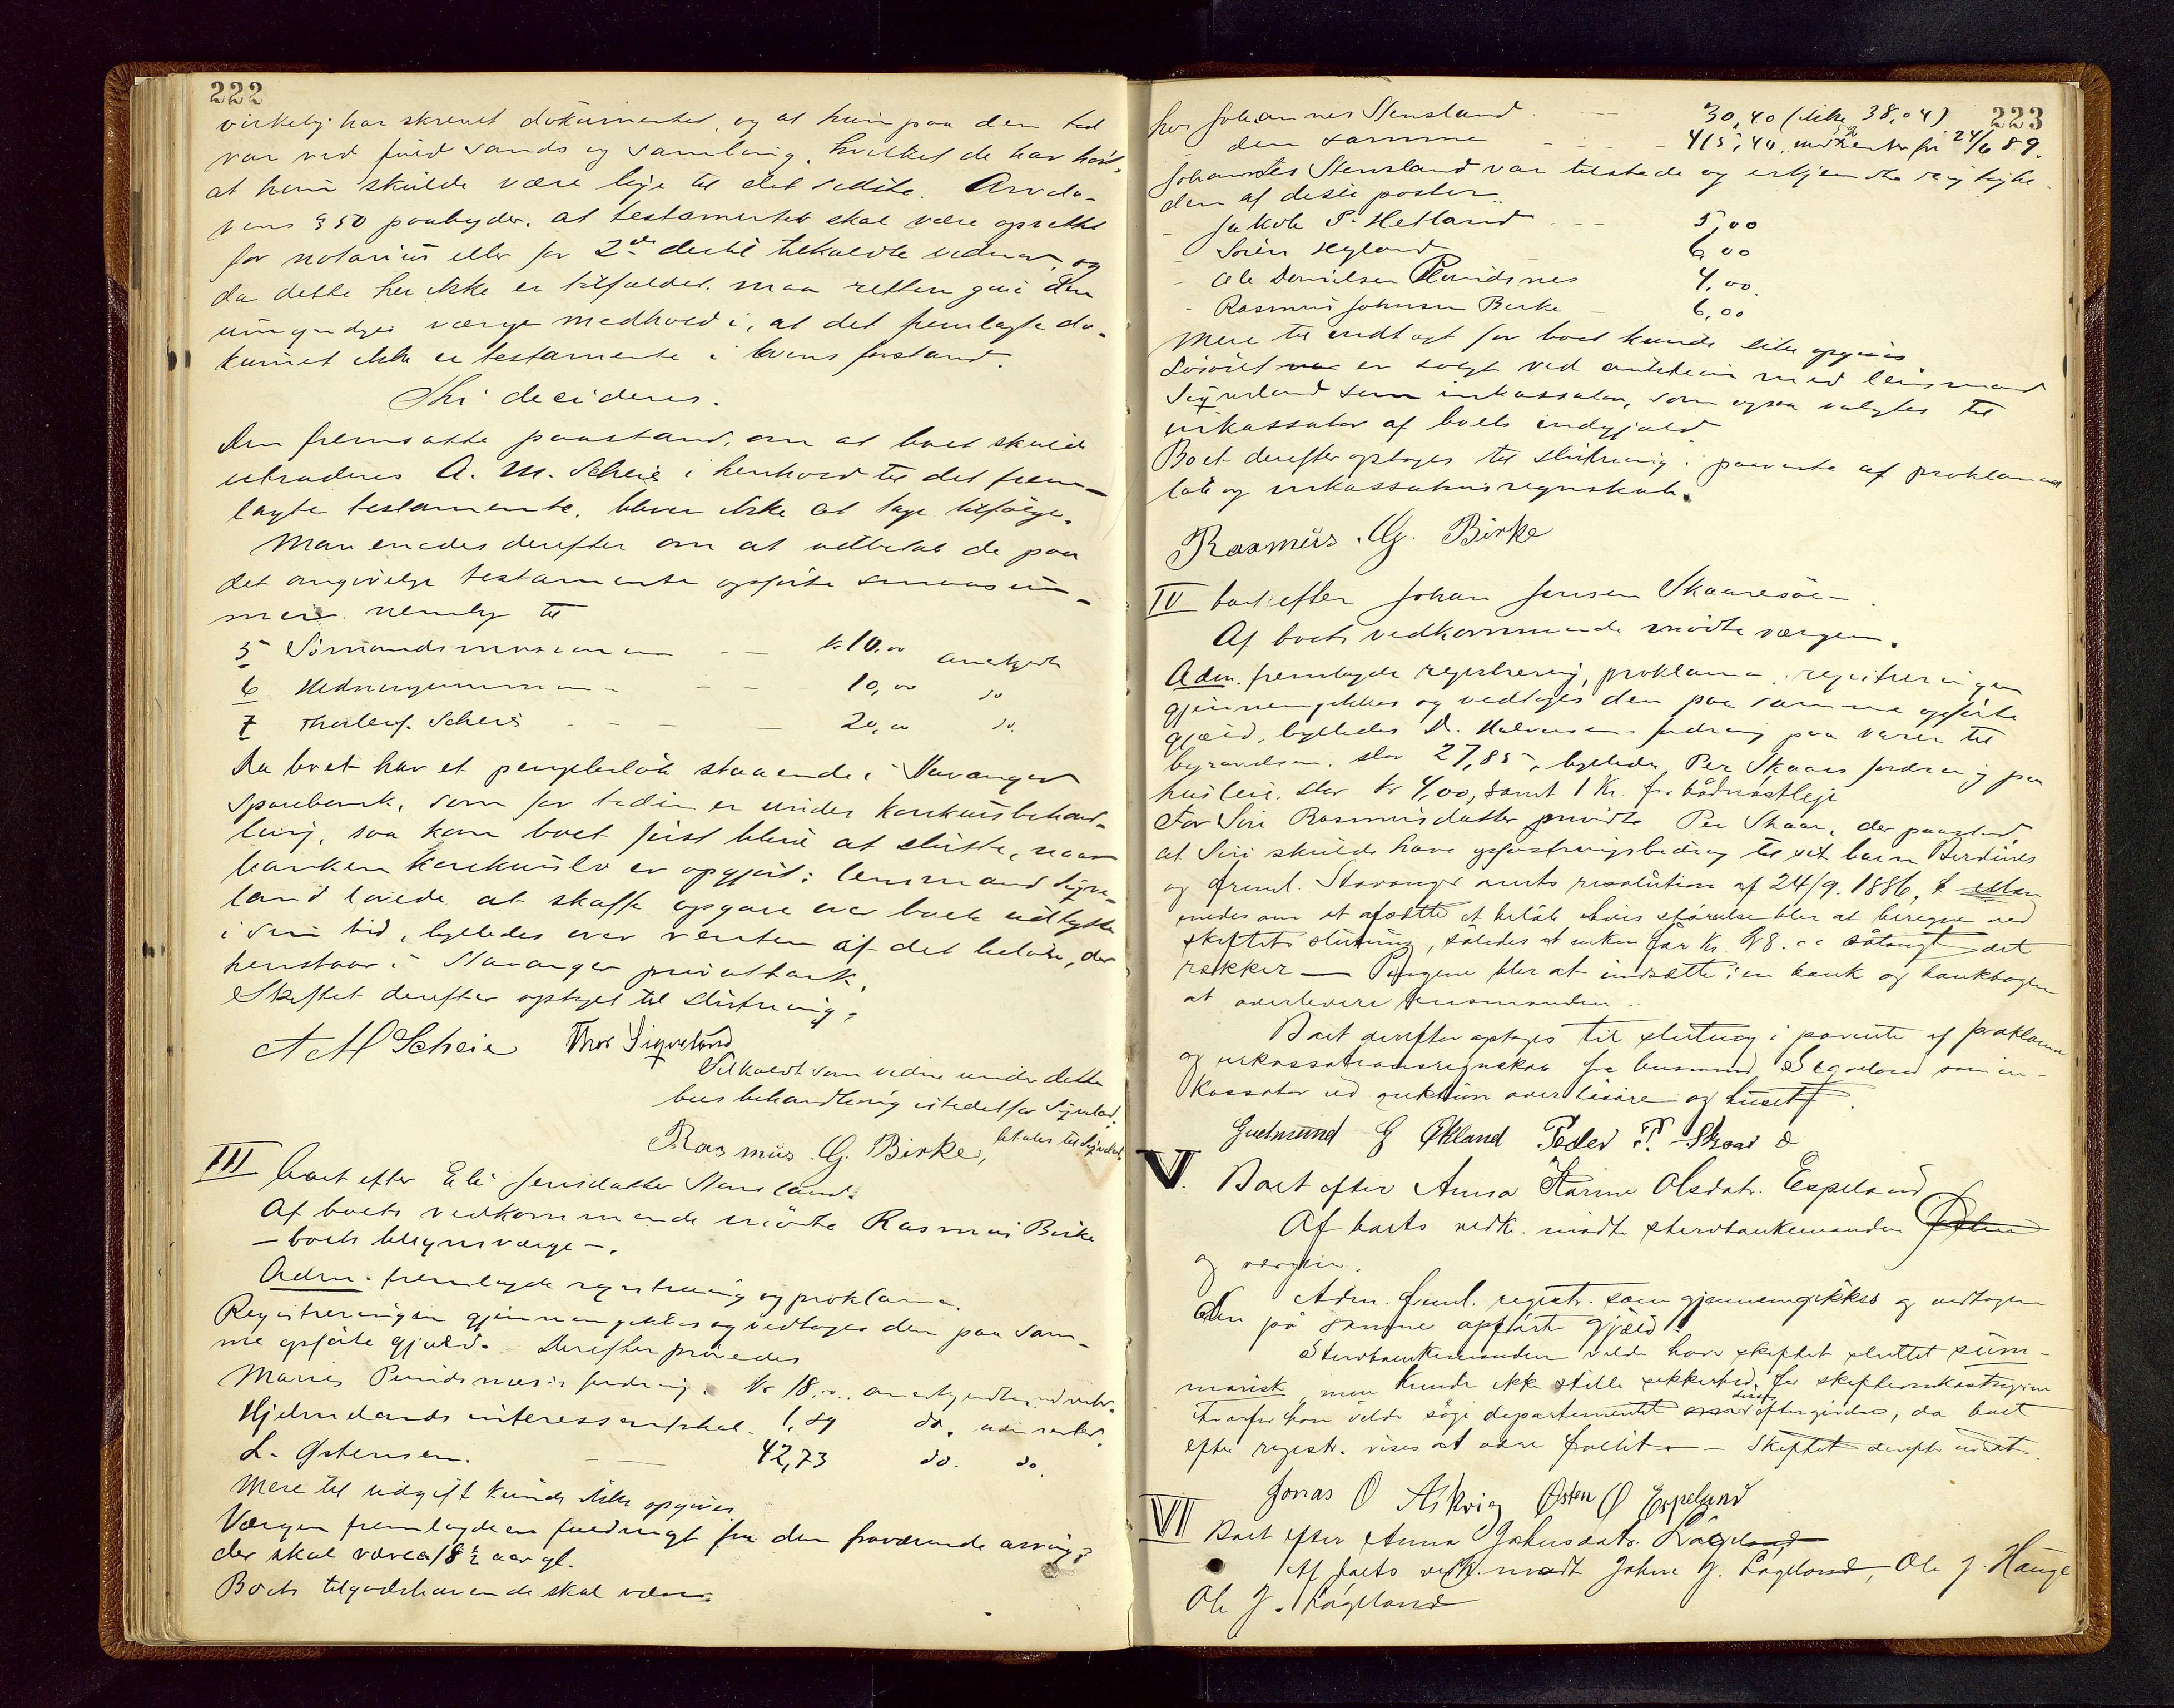 222
virkelig har skrevet dokumentet, og at hun paa den tid
var ved fuld sands og samling, hvilket de har hørt,
at hun skulde være lige til det sidste. Arvelo-
vens § 50 paabyder, at testamentet skal være oprettet
for notarius eller for 2de dertil tilkaldte vidner, og
da dette her ikke er tilfældet, maa retten give den
umyndiges værge medhold i, at det fremlagte do-
kument ikke er testamente i lovens forstand.
Thi decideres.
Den fremsatte paastand, om at boet skulde
extraderes A. M. Scheie i henhold til det frem-
lagte testamente, bliver ikke at tage tilfølge.
Man enedes derefter om at udbetale de paa
det angivelige testamente opførte smaasum-
mer, nemlig til
5 Sømandsmissionen — — kr 10,00 anerkjendt
6 Hedningemissionen - - - 10,00 do
7 Thorleif Scheie - - — — 20,00 do.
Da boet har et pengebeløb staaende i Stavanger
Sparebank, som for tiden er under konkursbehand-
ling, saa kan boet først blive at slutte, naar
banken konkursbo er opgjort; lensmand Sigve-
land lovede at skaffe opgave over boets udlodde
i sin tid, ligeledes over renten af det beløb, der
henstaar i Stavanger privatbank.
Skiftet derefter optaget til slutning.
A M Scheie Thor Sigveland
Tilkaldt som vidne under dette
boes behandling istedetfor Sigveland.
Rasmus G. Birke,
III boet efter Eli Jensdatter Stensland.
Af boets vedkommende mødte Rasmus Birke
— boets tilsynsværge —.
Adm. fremlagde registrering og proklama.
Registreringen gjennemgikkes og vedtoges den paa sam-
me opførte gjæld. Derefter prøvedes
Maries fordring. Kr 18,00 anerkjendtes
Hjelmelands interessentskab - 1,89 do. uden renter.
L. Østensen. — — 42,73 do. do
Mere til udgift kunde ikke opgives.
Værgen fremlagde en fuldmagt fra den fraværende arving,
der skal være 18 ½ aar gl.
Boets tilgodehavende skal være
223
hos Johannes Stensland - — 30,40 (ikke 38,04)
- den samme - - - - 415,40, med renter fra 24/6 89.
Johannes Stensland var tilstede og erkjendte rigtighe-
den af disse poster.
- Jakob P. Hetland - - - 5,00
- Søren Hegland 6,00
- Ole Danielsen 4,00.
- Rasmus Johnsen Birke — 6,00
Mere til indtægt for boet kunde ikke opgives
Løsøret er solgt ved auktion med lensmand
Sigveland som inkassator, som ogsaa valgtes til
inkassator af boets indgjæld.
Boet derefter optages til slutning i paavente af proklamaets
løb og inkassationsregnskab.
Rasmus. G. Birke
IV boet efter Johan Jensen Skaaresøen.
Af boets vedkommende mødte værgen.
Adm. fremlagde registrering, proklama. registreringen
gjennemgikkes og vedtoges den paa samme opførte
gjæld, ligeledes D. Halvorsens fordring paa varer til
begravelsen, stor 27,85, ligeledes Per Skaars fordring paa
husleie, stor kr 4,00, samt 1 Kr. for bådnøstleje
For Siri Rasmusdatter mødte Per Skaar, der paastod
at Siri skulde have opfostringsbidrag til sit barn
og freml. Stavanger amts resolution af 24/9. 1886. Man
enedes om at afsætte et beløb hvis størrelse blir at beregne ved
skiftets slutning, således at enken får Kr. 98.00 sålangt det
rækker — Pengene blir at indsætte i en bank og bankbogen
at overlevere lensmanden.
Boet derefter optages til slutning i påvente af proklama
og inkassationsregnskab fra lensmand Sigveland som in-
kassator ved auktion over løsøre og huset.
Gudmund G Økland Peder P. Skaar
V. Boet efter Anna Karine Olsdatr. Espeland
Af boets vedk. mødte stervboenkemanden
og værgen.
Adm. freml. registr. som gjennemgikkes og vedtoges
den på samme opførte gjæld.
Stervboenkemanden vilde have skiftet sluttet sum-
marisk, men kunde ikke stille sikkerhed for skifteomkostningerne
hvorfor han vilde søge departementet eftergivelse, da boet
efter registr. vises at være fallit. — Skiftet derefter udsat.
Jonas O Askvig Østen O Espeland
VI Boet efter Anna Johnsdatr. Lågeland
Af boets vedk. mødt John J. Lågeland, Ole J. Hauge
Ole J. Lågeland